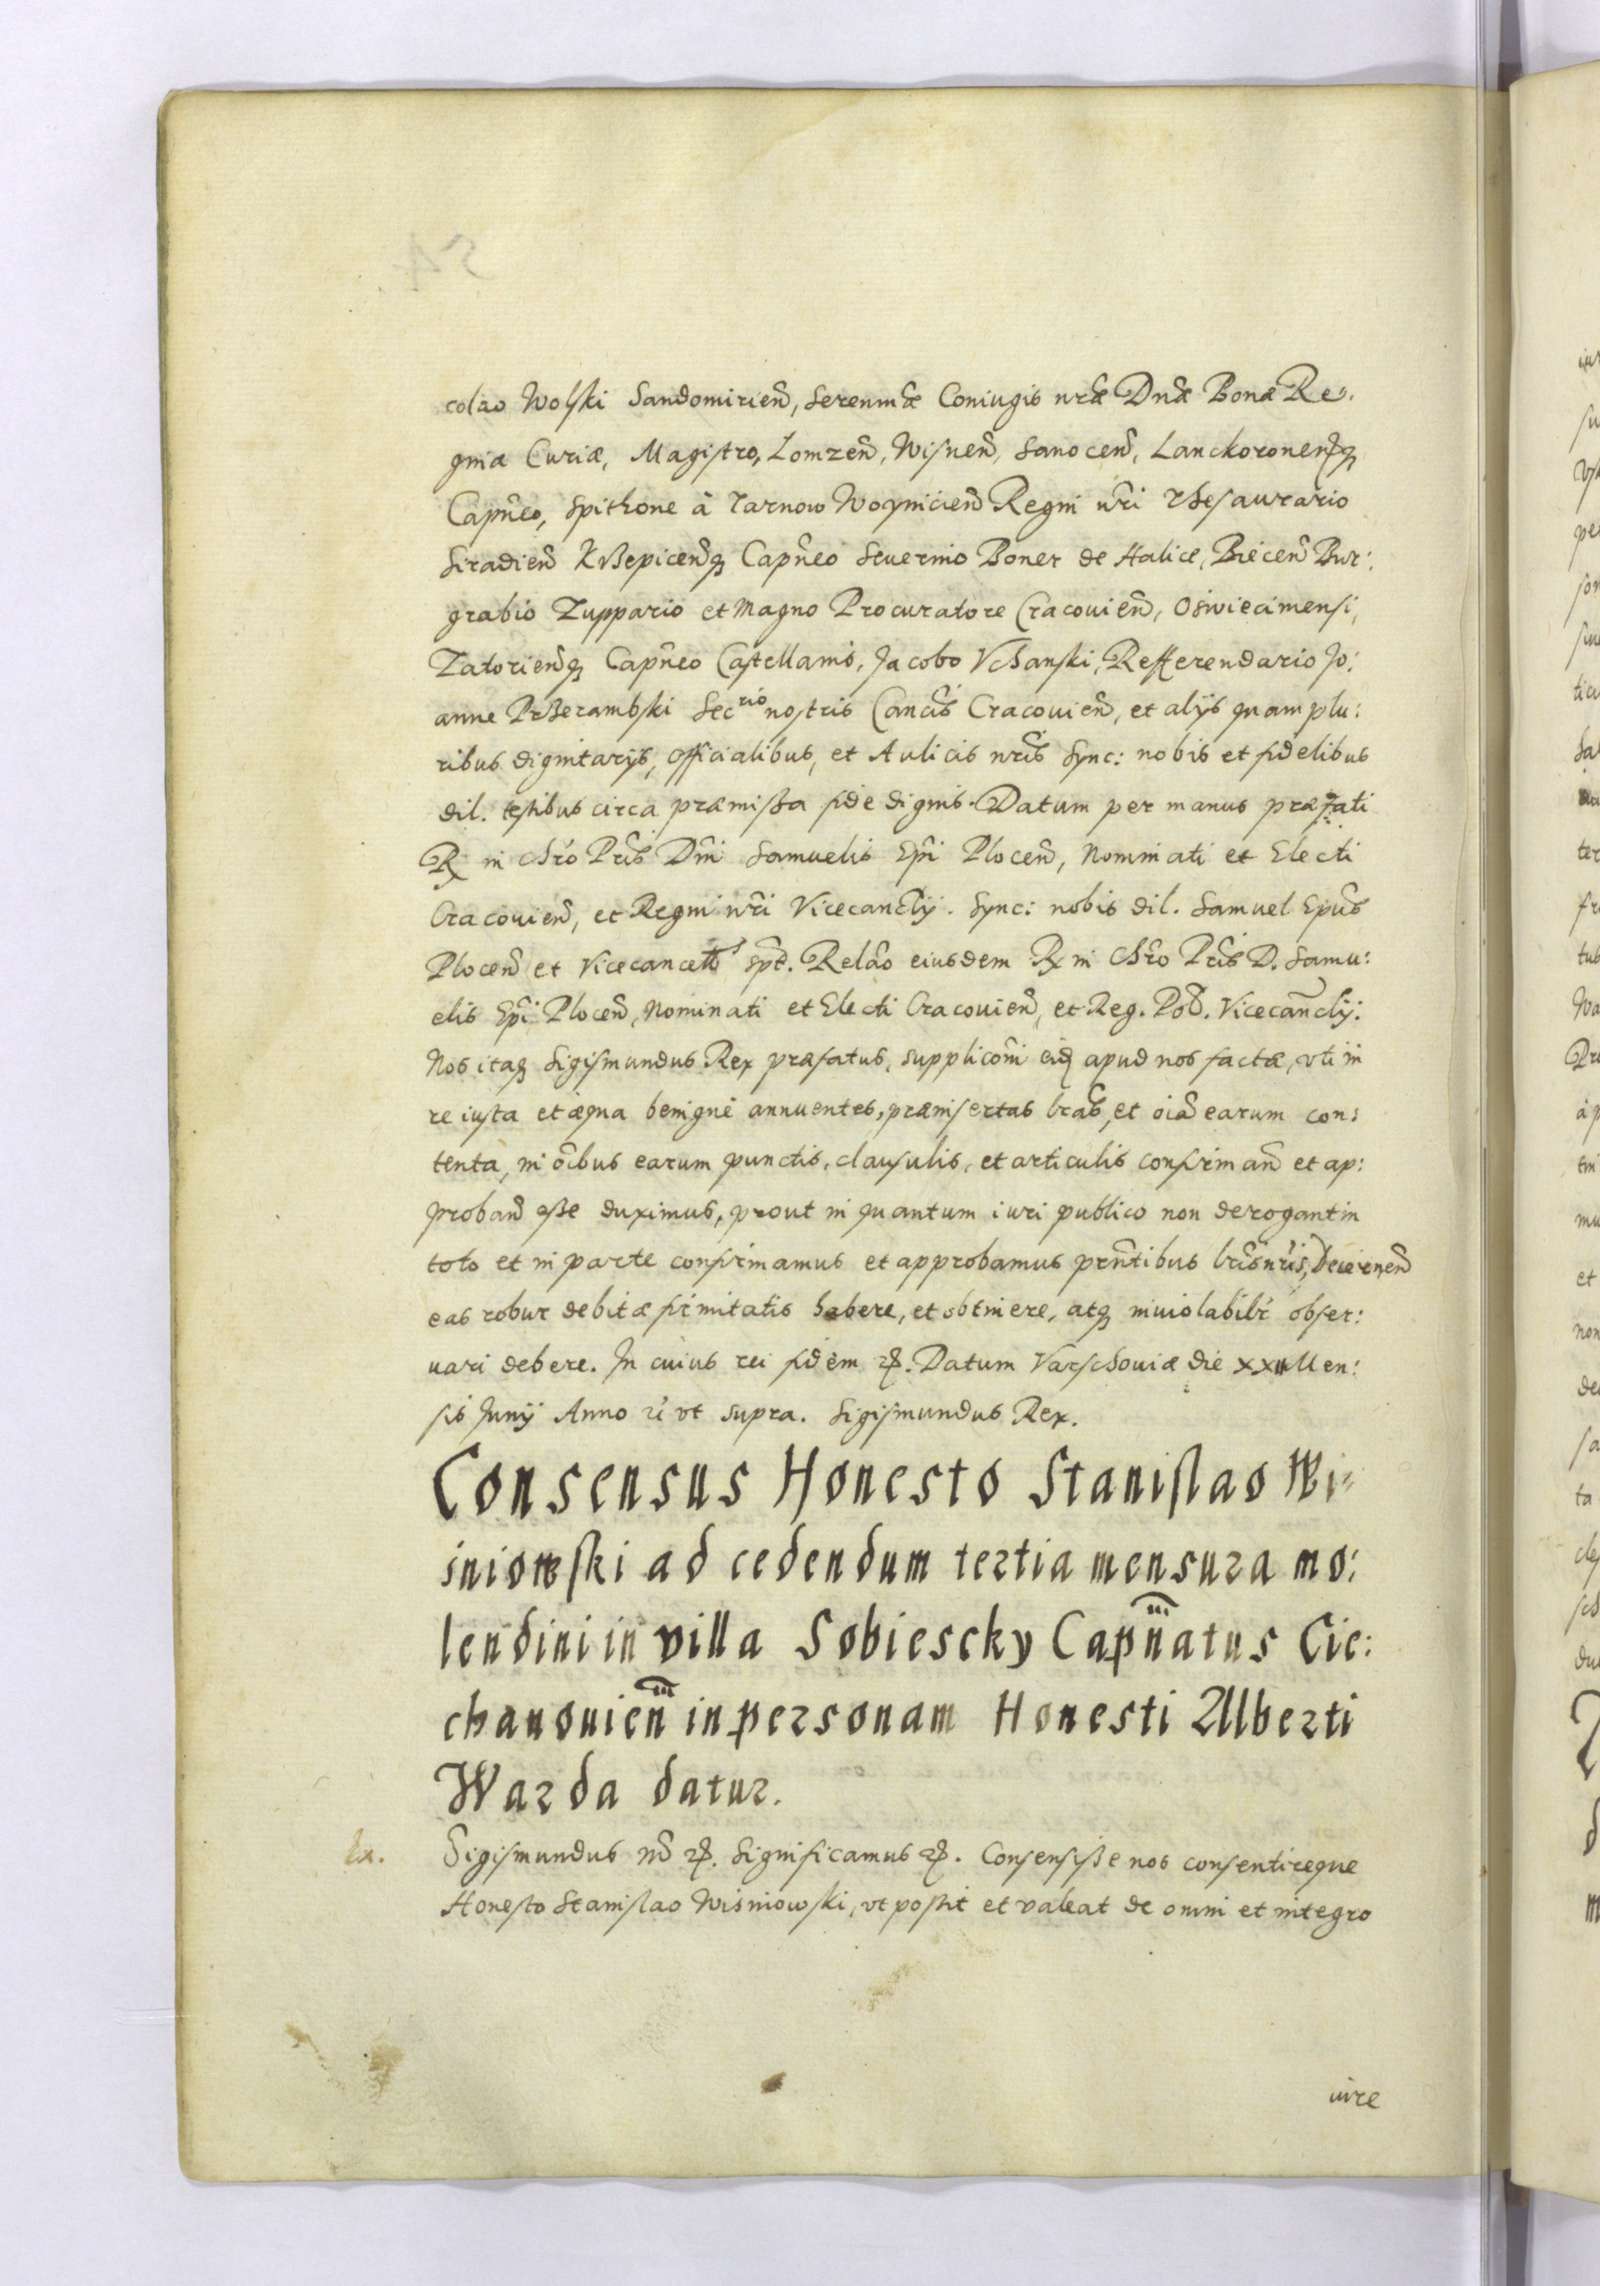 colao Wolski Sandomirien̄, Serenm̄æ Coniugis nr̄æ Dn̄æ Bonæ Re:
ginæ Curiæ, Magistro, Lomzen̄, Wisnen̄, Sanocen̄, Lanckoronenq̷
Capn̄eo, Spithone à Tarnow Woynicien̄ Regni nr̄i Thesaurario
Siradien̄ Krzepicen̄q̷ Capn̄eo Seuerino Boner de Balice, Biecen̄ Bur:
grabio Zuppario et Magno Procuratore Cracouien̄, Oświecimensi,
Zatorien̄q̷ Capn̄eo Castellanis, Jacobo Vchanski, Refferendario Jo:
anne Przerambski Secrio nostris Canc̄is Cracouien̄, et alijs quamplu:
ribus dignitarijs, officialibus, et Aulicis nr̄is Sync: nobis et fidelibus
dil. testibus circa præmissa fide dignis. Datum per manus præfati
R in Chr̄o Pr̄is Dn̄i Samuelis Ep̄i Plocen̄, Nominati et Electi
Cracouien̄, et Regni nr̄i Vicecancl̄ij. Sync: nobis dil. Samuel Ep̄us
Plocen̄ et Vicecancell̄s sp̄t. Relāo eiusdem R in Chr̄o Pr̄is D. Samu:
elis Ep̄i Plocen̄, Nominati et Electi Cracouien̄, et Reg. Pol̄. Vicecan̄clij:
Nos itaq̷ Sigismundus Rex præfatus, supplicōni eid̷ apud nos factæ, vti in
re iusta et æqua benignè annuentes, præinsertas lr̄as, et oīa earum con:
tenta, in oībus earum punctis, clausulis, et articulis confirman̄ et ap:
proban̄ esse duximus, prout in quantum iuri publico non derogant in
toto et in parte confirmamus et approbamus prn̄tibus lr̄is nr̄is, Decernen̄
eas robur debitæ firmitatis habere, et obtinere, atq̷ inuiolabilr̄ obser:
uari debere. In cuius rei fidem ꝛc. Datum Varschouiæ die XXII Men:
sis Junij Anno ꝛc vt supra. Sigismundus Rex.
Consensus Honesto Stanislao Wi=
śniowski ad cedendum tertia mensura mo:
lendini in villa Sobiescky Capn̄atus Cie:
chanouien̄ in personam Honesti Alberti
Warda datur.
Ex.
Sigismundus ꝛc. Significamus ꝛc. Consensisse nos consentireque
Honesto Stanislao Wiśniowski, vt possit et valeat de omni et integro
iure